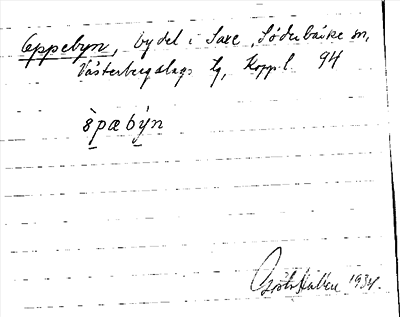 Oppebyn, bydel i Saxe, Söderbärke sn,
Västerbergslags tg, Kopp.l. 94
ö̀pæbýn
1934.